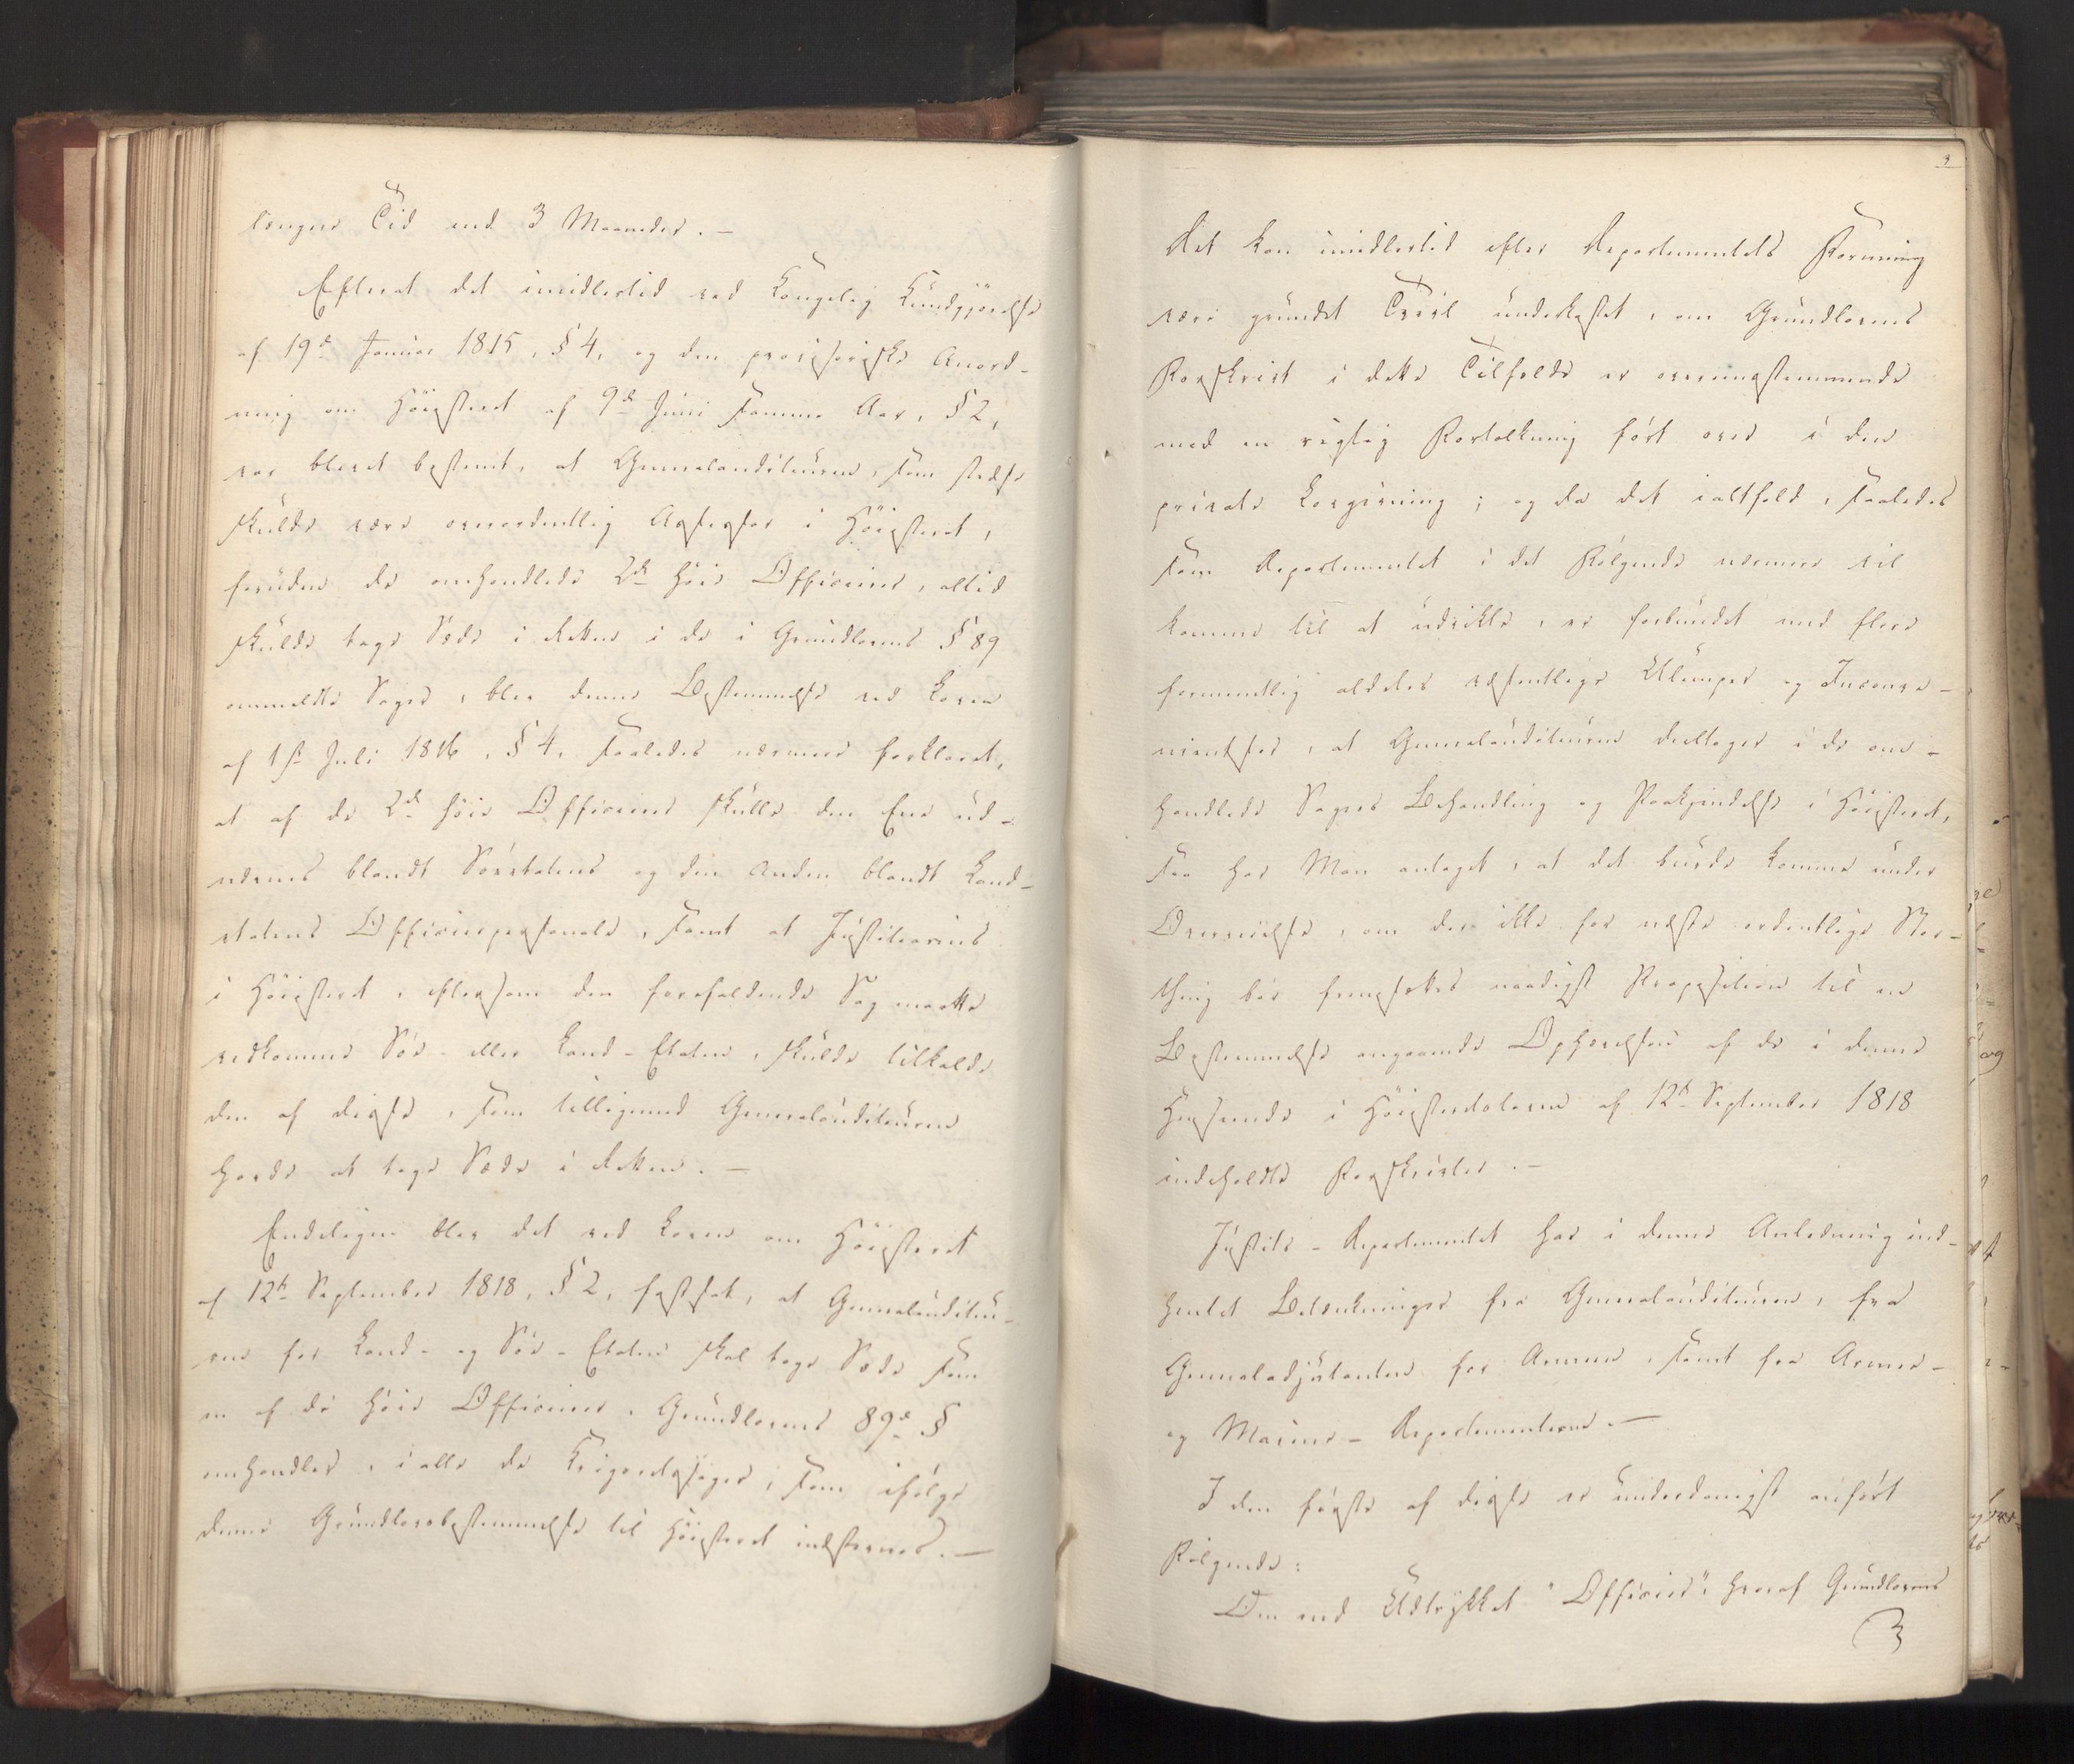 længere Tid end 3 Maaneder. —
Efterat det imidlertid ved Kongelig Kundgjørelse
af 19de Januar 1815, § 4, og den provisoriske Anord-
ning om Höiesteret af 9de Juni samme Aar, § 2,
var blevet bestemt, at Generalauditeuren, som stedse
skulde være overordentlig Assessor i Höiesteret,
foruden de omhandlede 2de höie Officierer, altid
skulde tage Sæde i Retten i de i Grundlovens § 89
ommeldte Sager, blev denne Bestemmelse ved Loven
af 1ste Juli 1816, § 4, saaledes nærmere forklaret,
at af de 2de höie Officierer skulle den Ene ud-
nævnes blandt Söeetatens og den Anden blandt Land-
etatens Officierpersonale, samt at Justitiarius
i Höiesteret, eftersom den forefaldende Sag maatte
vedkomme Söe- eller Land-Etaten, skulde tilkalde
den af disse, som tilligemed Generalauditeuren
havde at tage Sæde i Retten. —
Endeligen blev det ved Loven om Höiesteret
af 12te September 1818, § 2, fastsat, at Generalauditeu-
ren for Land- og Söe-Etaten skal tage Sæde som
en af de höie Officierer, Grundlovens 89de §
omhandler, i alle de Krigsretssager, som ifølge
denne Grundlovsbestemmelse til Höiesteret indstævnes. —
3
Det kan imidlertid efter Departementets Formening
være grundet Tvivl underkastet, om Grundlovens
Forskrivt i dette Tilfælde er overeensstemmende
med en rigtig Fortolkning ført over i den
private Lovgivning; og da det ialtfald, saaledes
som Departementet i det Følgende nærmere vil
komme til at udvikle, er forbundet med flere
formentlig aldeles væsentlige Ulemper og Inconve-
nientser, at Generalauditeuren deeltager i de om-
handlede Sagers Behandling og Paakjendelse i Höiesteret,
saa har Man antaget, at det burde komme under
Overveielse, om der ikke for næste ordentlige Stor-
thing bør fremsættes naadigst Proposition til en
Bestemmelse angaaende Ophævelsen af de i denne
Henseende i Höiesteretsloven af 12te September 1818
indeholdte Forskrivter. —
Justits-Departementet har i denne Anledning ind-
hentet Betænkninger fra Generalauditeuren, fra
Generaladjutanten for Armeen, samt fra Armee-
og Marine-Departementerne. —
I den første af disse er underdanigst anført
Følgende:
Om end Udtrykket "Officier", hvoraf Grundlovens